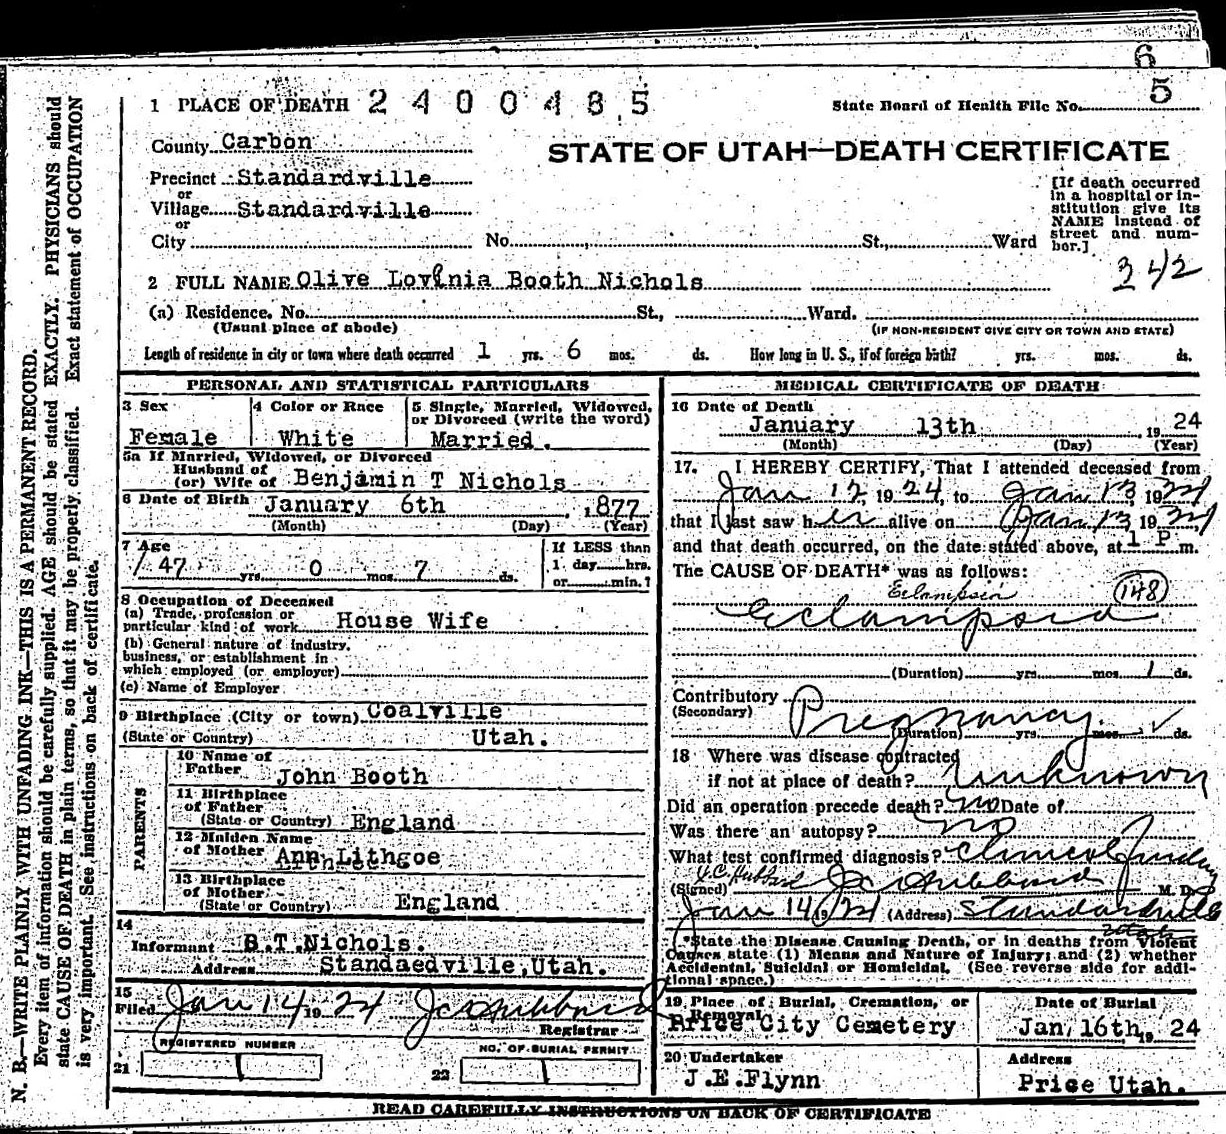 6
5
1 PLACE OF DEATH 2 4 0 0 4 8 5
State Board of Health File No.
County Carbon
STATE OF UTAH—DEATH CERTIFICATE
Precinct Standardville
or
Village Standardville
or
City No. St., Ward
[If death occurred
in a hospital or in-
stitution give its
NAME instead of
street and num-
ber.]
342
2 FULL NAME Olive Lovinia Booth Nichols
(a) Residence. No. St., Ward.
(Usual place of abode)
(IF NON-RESIDENT GIVE CITY OR TOWN AND STATE)
Length of residence in city or town where death occurred 1 yrs. 6 mos. ds. How long in U. S., if of foreign birth? yrs. mos. ds.
PERSONAL AND STATISTICAL PARTICULARS
3 Sex
Female
4 Color or Race
White
5 Single, Married, Widowed,
or Divorced (write the word)
Married.
5a If Married, Widowed, or Divorced
Husband of
(or) Wife of Benjamin T Nichols
6 Date of Birth January 6th , 1877
(Month) (Day) (Year)
7 Age
47 yrs. 0 mos. 7 ds.
If LESS than
1 day hrs.
or min.?
8 Occupation of Deceased
(a) Trade, profession or
particular kind of work House Wife
(b) General nature of industry,
business, or establishment in
which employed (or employer)
(c) Name of Employer
9 Birthplace (City or town) Coalville
(State or Country) Utah.
PARENTS
10 Name of
Father John Booth
11 Birthplace
of Father
(State or Country) England
12 Maiden Name
of Mother Ann Lithgoe
13 Birthplace
of Mother
(State or Country) England
14
Informant B.T.Nichols.
Address Standaedville,Utah.
15
Filed Jan 14 1924 J C Hubbard
Registrar
REGISTERED NUMBER
21
NO. OF BURIAL PERMIT
22
MEDICAL CERTIFICATE OF DEATH
16 Date of Death
January 13th , 1924
(Month) (Day) (Year)
17. I HEREBY CERTIFY, That I attended deceased from
Jan 12, 1924, to Jan 13 1924
that I last saw her alive on Jan 13 1924
and that death occurred, on the date stated above, at 1 P m.
The CAUSE OF DEATH* was as follows:
Eclampsia 148
Eclampsia
(Duration) yrs. mos. 1 ds.
Contributory Pregnancy.
(Secondary)
(Duration) yrs. mos. ds.
18 Where was disease contracted
if not at place of death? Unknown
Did an operation precede death? no Date of
Was there an autopsy? no
What test confirmed diagnosis? Clinical
J.C. Hubbard
(Signed) J C Hubbard M. D.
Jan 14 1924 (Address) Standardville
Utah
*State the Disease Causing Death, or in deaths from Violent
Causes state (1) Menns and Nature of Injury; and (2) whether
Accidental, Suicidal or Homicidal. (See reverse side for addi-
tional space.)
19 Place of Burial, Cremation, or
Removal
Price City Cemetery
Date of Burial
Jan, 16th, 1924
20 Undertaker
J.E.Flynn
Address
Price Utah.
READ CAREFULLY INSTRUCTIONS ON BACK OF CERTIFICATE
N. B.—WRITE PLAINLY WITH UNFADING INK—THIS IS A PERMANENT RECORD.
Every item of information should be carefully supplied. AGE should be stated EXACTLY. PHYSICIANS should
state CAUSE OF DEATH in plain terms, so that it may be properly classified. Exact statement of OCCUPATION
is very important. See instructions on back of certificate.